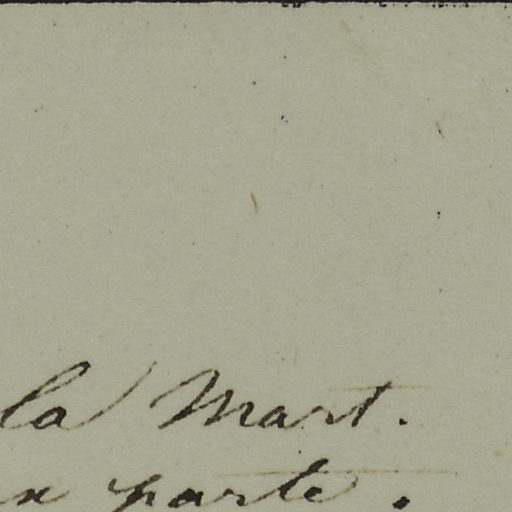 la Mart.
x parte.